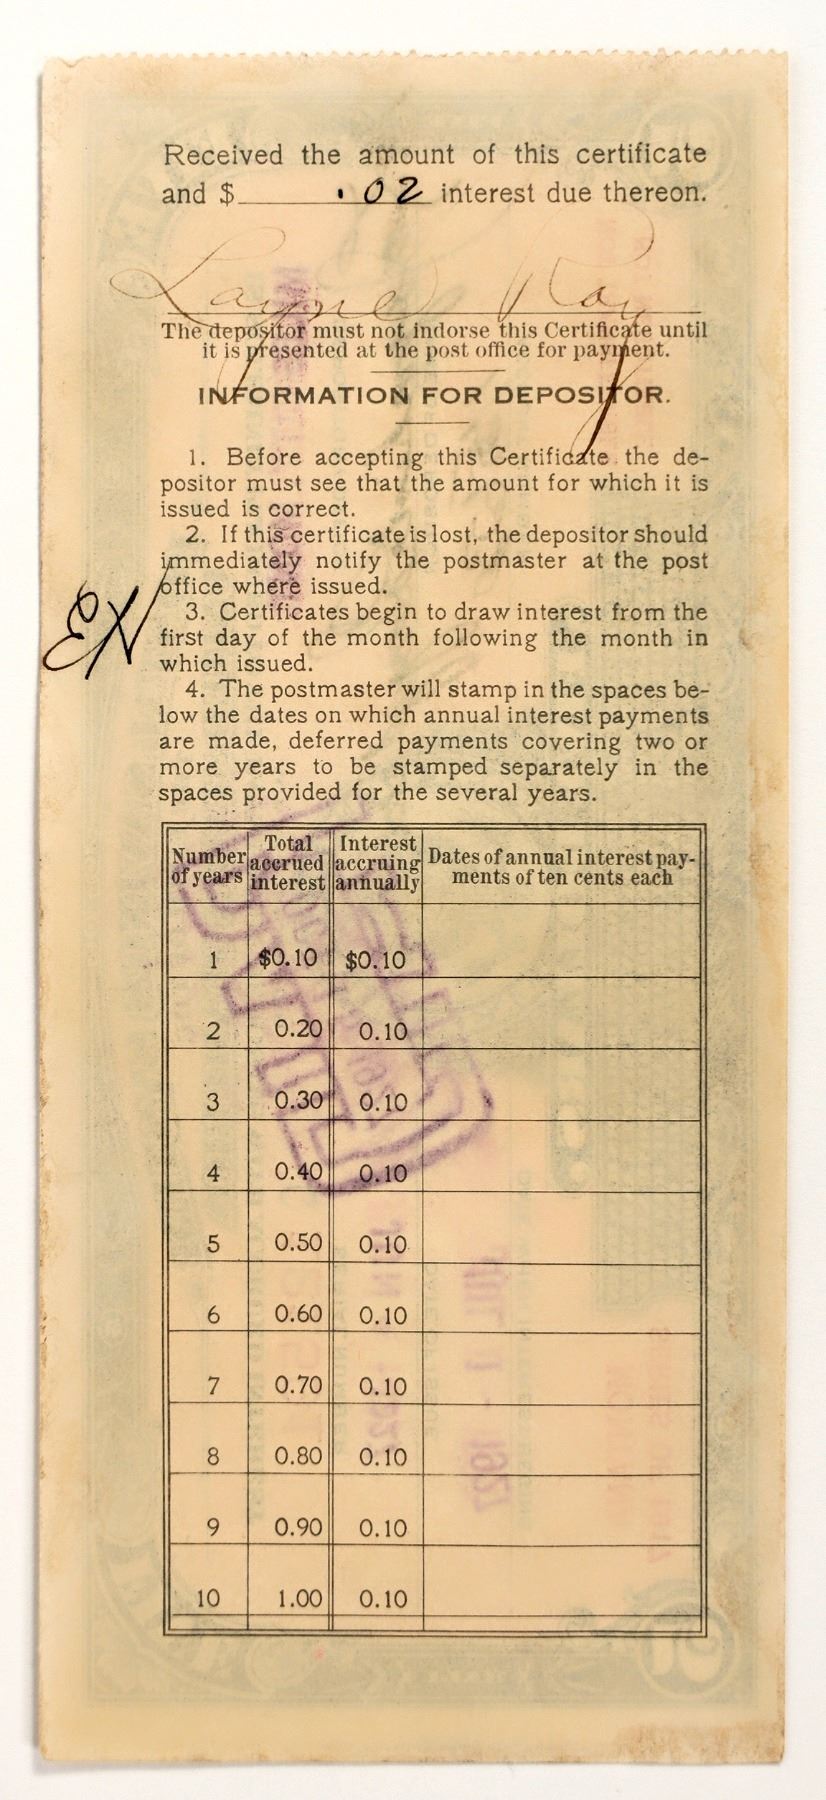 Received the amount of this certificate
and $ .02 interest due thereon.
Layne Ray
The depositor must not indorse this Certificate until
it is presented at the post office for payment.
INFORMATION FOR DEPOSITOR.
1. Before accepting this Certificate the de-
positor must see that the amount for which it is
issued is correct.
2. If this certificate is lost, the depositor should
immediately notify the postmaster at the post
office where issued.
3. Certificates begin to draw interest from the
first day of the month following the month in
which issued.
4. The postmaster will stamp in the spaces be-
low the dates on which annual interest payments
are made, deferred payments covering two or
more years to be stamped separately in the
spaces provided for the several years.
Number of years Total accrued interest Interest accruing annually Dates of annual interest pay-
ments of ten cents each
1 $0.10 $0.10
2 0.20 0.10
3 0.30 0.10
4 0.40 0.10
5 0.50 0.10
6 0.60 0.10
7 0.70 0.10
8 0.80 0.10
9 0.90 0.10
10 1.00 0.10